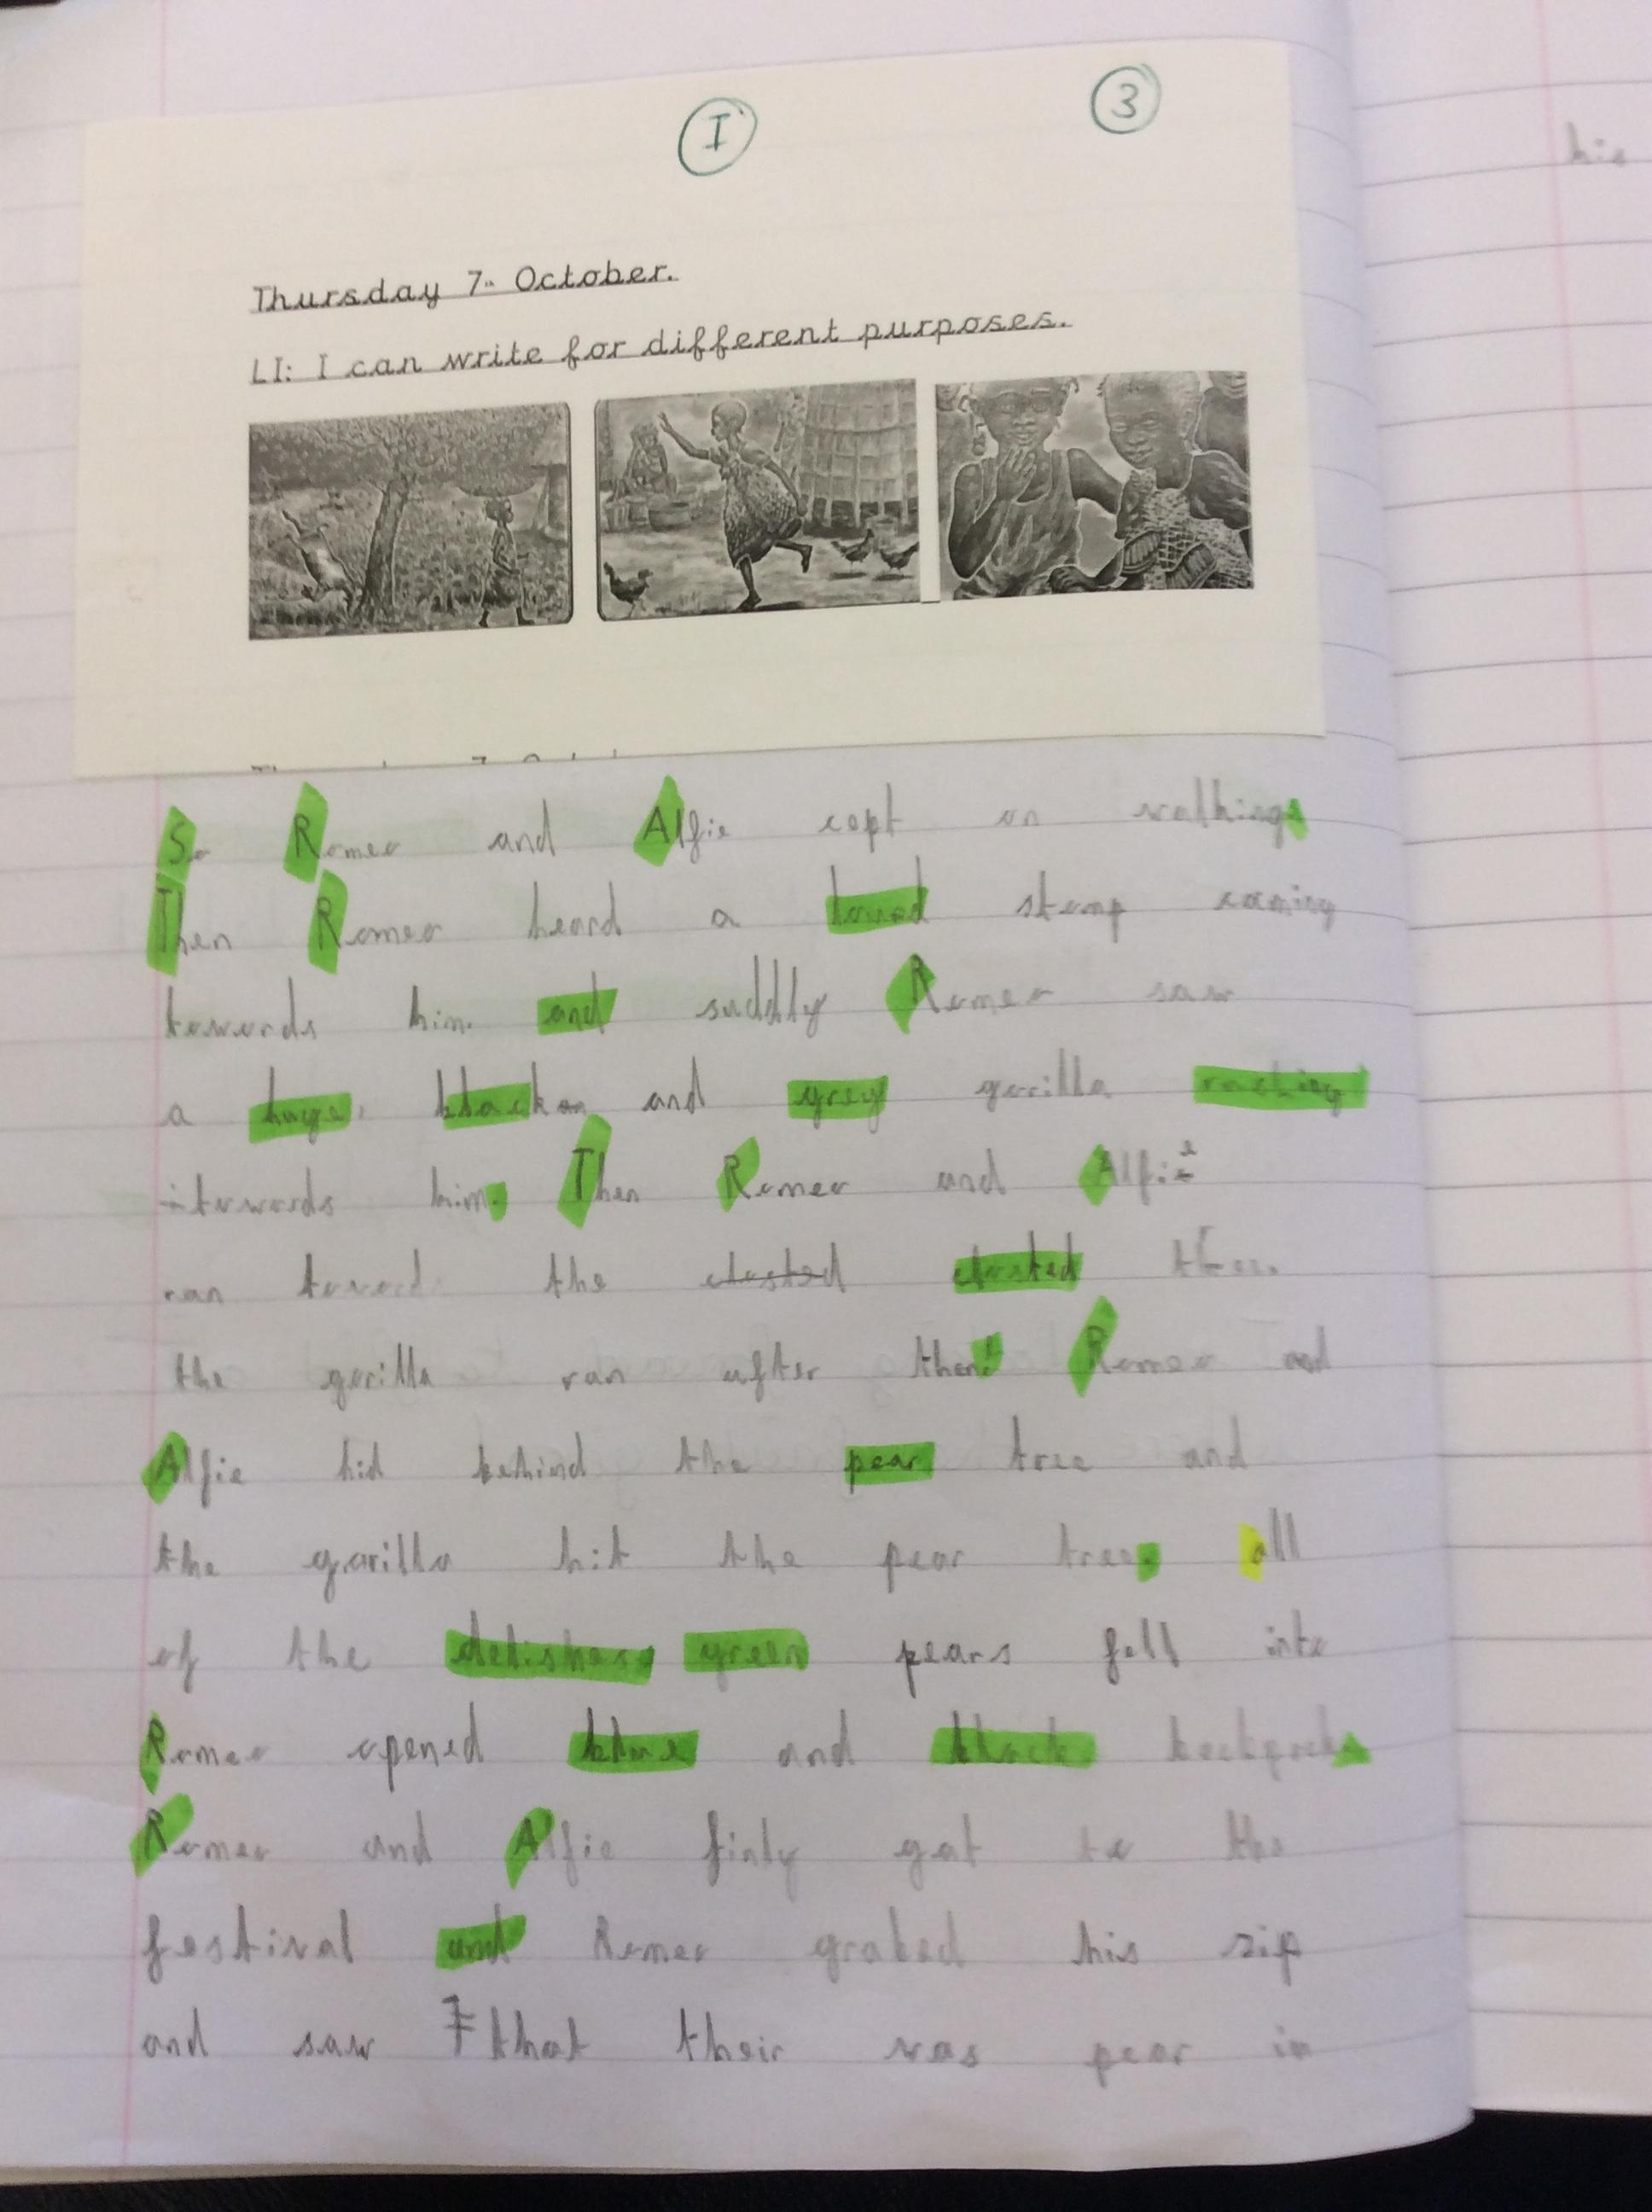 I 3
Thursday 7th October.
LI: I can write for different purposes.
So Romeo and Alfie cept on walking.
Then Romeo heard a loued stomp coming
towards him. and suddly Romeo saw
a huge, black and grey gorilla
towards him. Then Romeo and Alfie
ran the clusted clusted
the gorilla ran after them! Romeo and
Alfie hid behind the pear tree and
the gorilla hit the pear tree. all
of the delishess green pears fell into
Romeo opened blue and black backpack.
Romeo and Alfie finly got to the
festival and Romeo grabed his zip
and saw that their was pear in
his